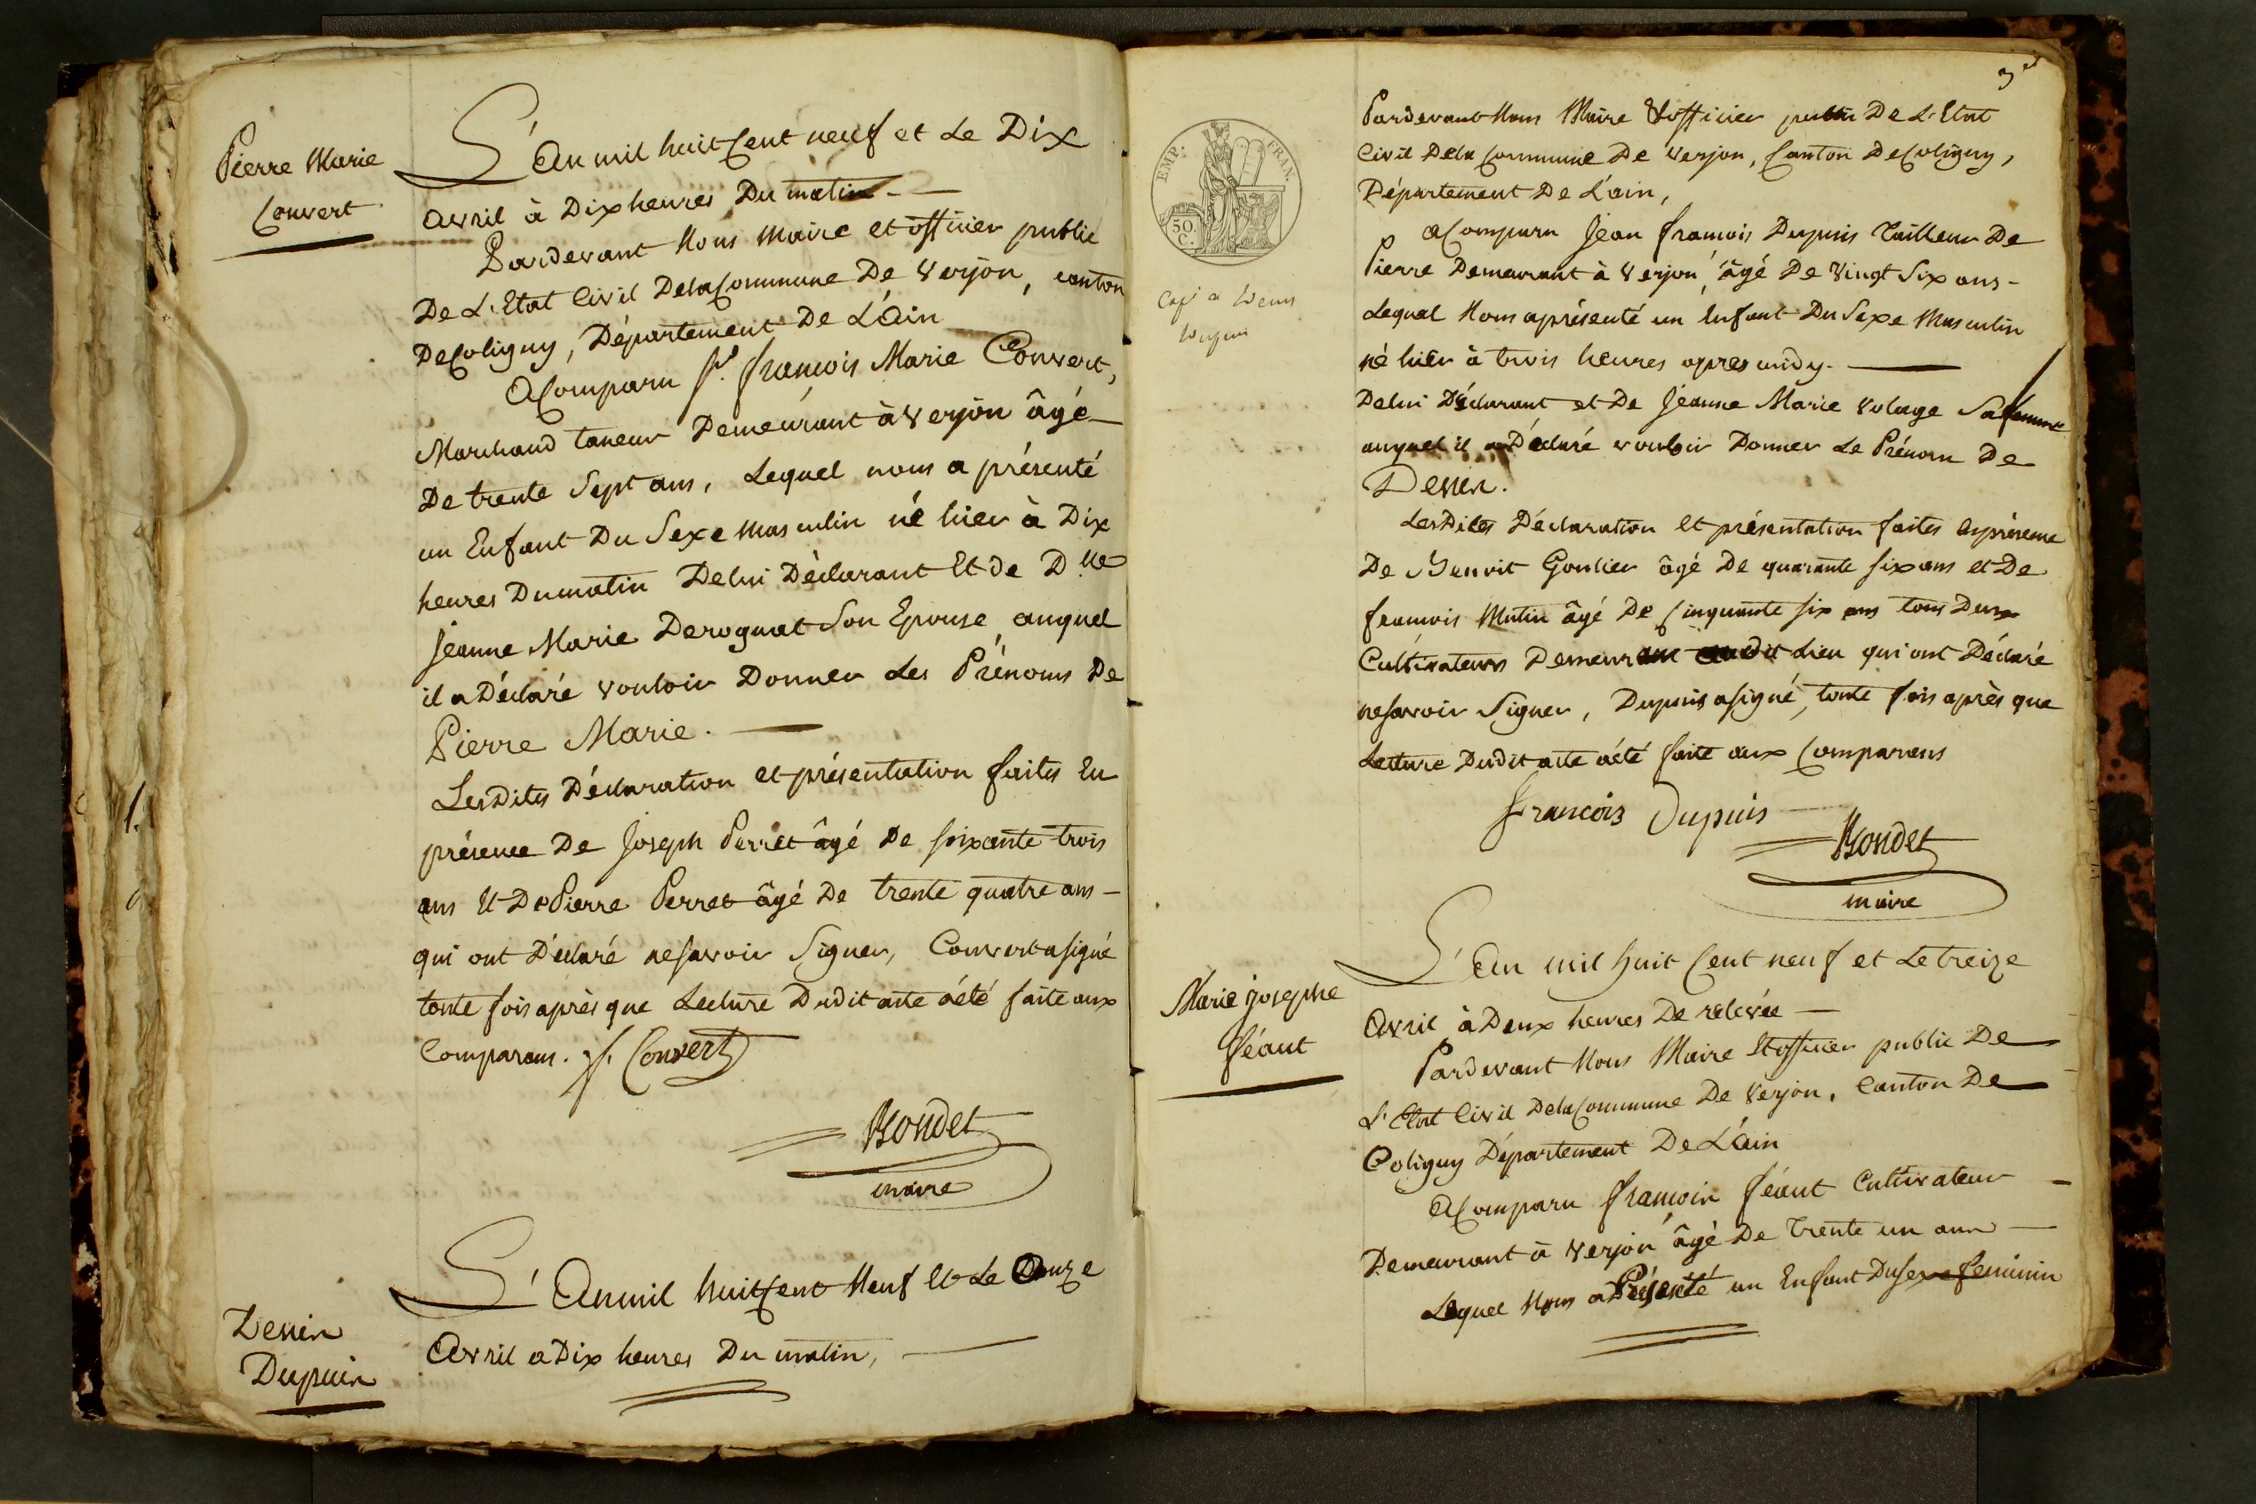 Pierre Marie
Convert
L'An mil huit Cent neuf et Le Dix
avril à Dix heures Du matin
Pardevant Nous Maire et officier public
De L'Etat Civil DelaCommune De Verjon, canton
DeColigny, Département De L'Ain
aComparu Sr. françois Marie Convert,
Marchand taneur Demeurant à Verjon âgé
De trente Sept ans, Lequel nous a présenté
un Enfant Du Sexe masculin né hier à Dix
heures Dumatin Delui Déclarant Et de D.lle
Jeanne Marie Derognat Son Epouse auquel
il a Déclaré vouloir Donner Les Prénoms De
Pierre Marie.
LesDites Déclaration et présentation faites En
présence De Joseph Perret âgé De soixante trois
ans Et De Pierre Perret âgé De trente quatre ans
qui ont Déclaré neSavoir Signer, Convert aSigné
toute fois après que Lecture Dudit acte aété faite aux
Comparans. f. Convert
Bondet
maire
Denin
Dupuin
L'An mil huit Cent Neuf Et Le Douze
Avril a Dix heures Du matin,
3
EMP: FRAN.
50.
C.
Pardevant Nous Maire & officier public De L'Etat
Civil Dela Commune De Verjon, Canton DeColigny,
Département De L'ain,
aComparu Jean françois Dupuis Tailleur De
Pierre Demeurant à Verjon, âgé De Vingt Six ans
Lequel Nous aprésenté un Enfant Du Sexe Masculin
né hier à trois heures apres midy.
Delui Déclarant et De Jeanne Marie Volage Sa femme
auquel il a Déclaré vouloir Donner Le Prénom De
Denin.
LesDites Déclaration Et présentation faites Enprésence
De Benoit Goulier âgé De quarante six ans et De
françois Mutin âgé De Cinquante six ans tous Deux
Cultivateurs Demeurant audit Lieu qui ont Déclaré
nesavoir Signer, Dupuis asigné, toute fois après que
Lecture Dudit acte aété faite aux Comparans
francois Dupuis
Bondet
maire
Marie josephe
féaut
L'An mil huit Cent neuf et Le treize
Avril à Deux heures De relevée
Pardevant Nous Maire Et officier public De
L'Etat Civil DelaCommune De Verjon, Canton De
Coligny Département De L'ain
aComparu françoin féaut Cultivateur
Demeurant à Verjon âgé De Trente un ann
Lequel Nous a Présenté un Enfant DuSexe feminin